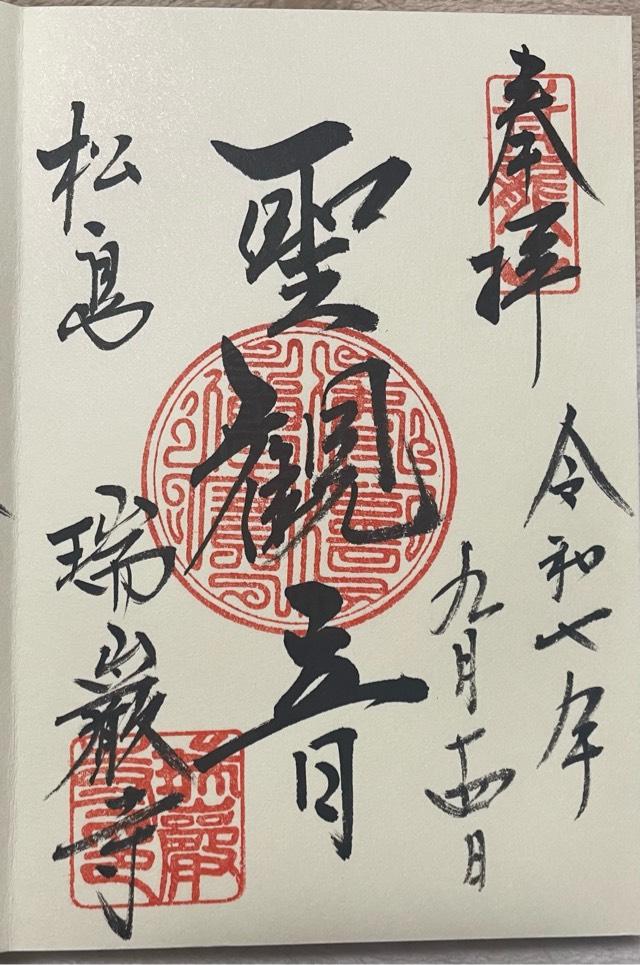 奉拝
令和七年
九月十四日
聖観音
松島
瑞巌寺
瑞巌